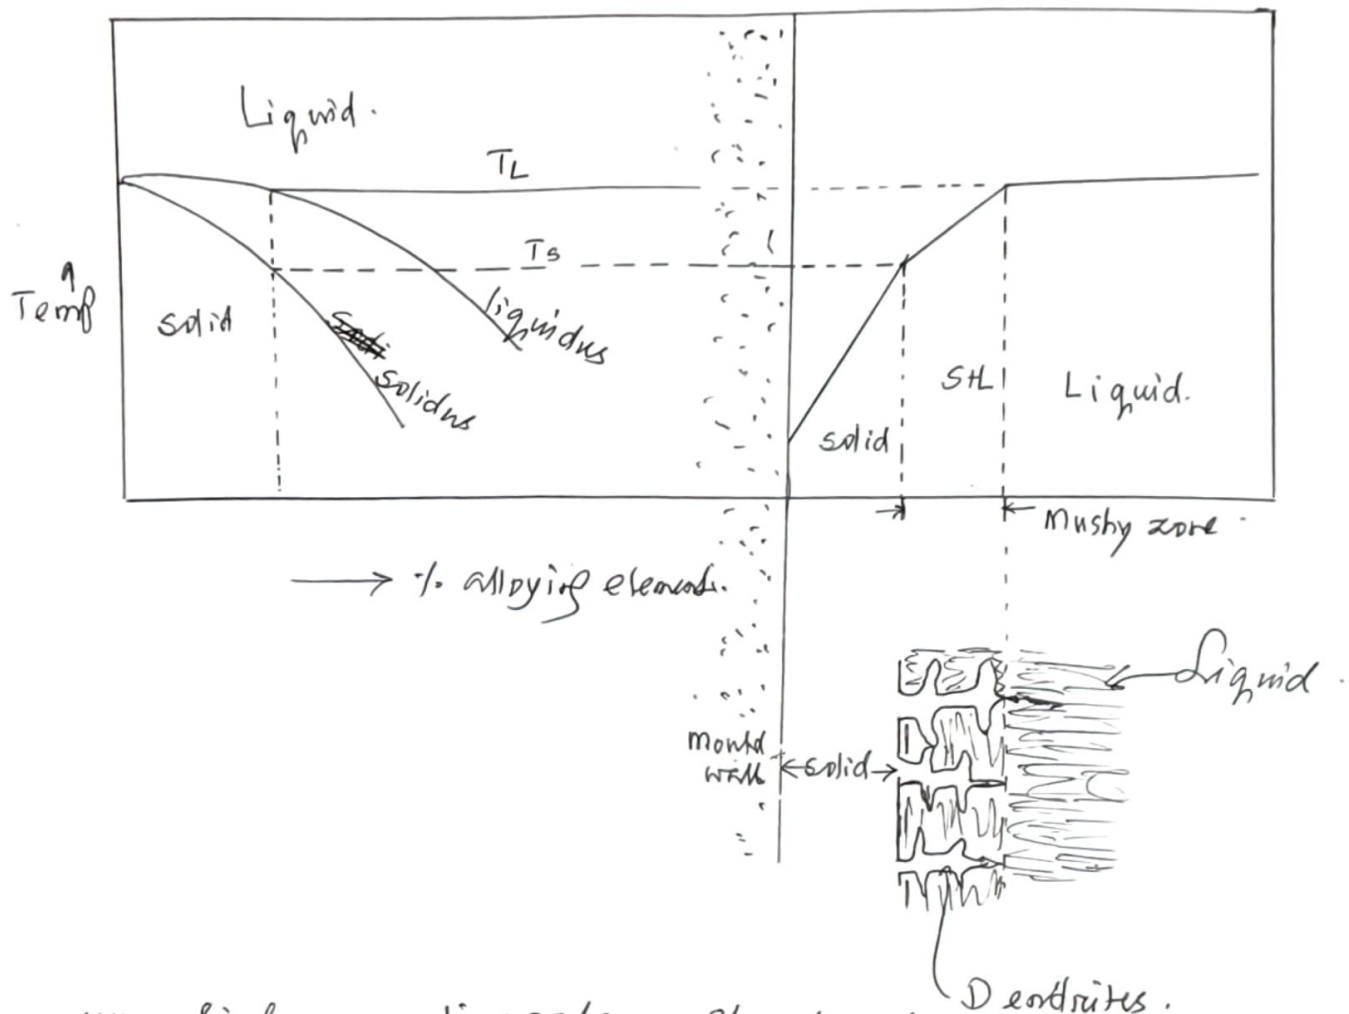 Liquid.
TL
Ts
Temp
solid
liquidus
solidus
S+L
Liquid.
solid
Mushy zone
% alloying elements.
Liquid.
Mould
wall
solid
Dendrites.